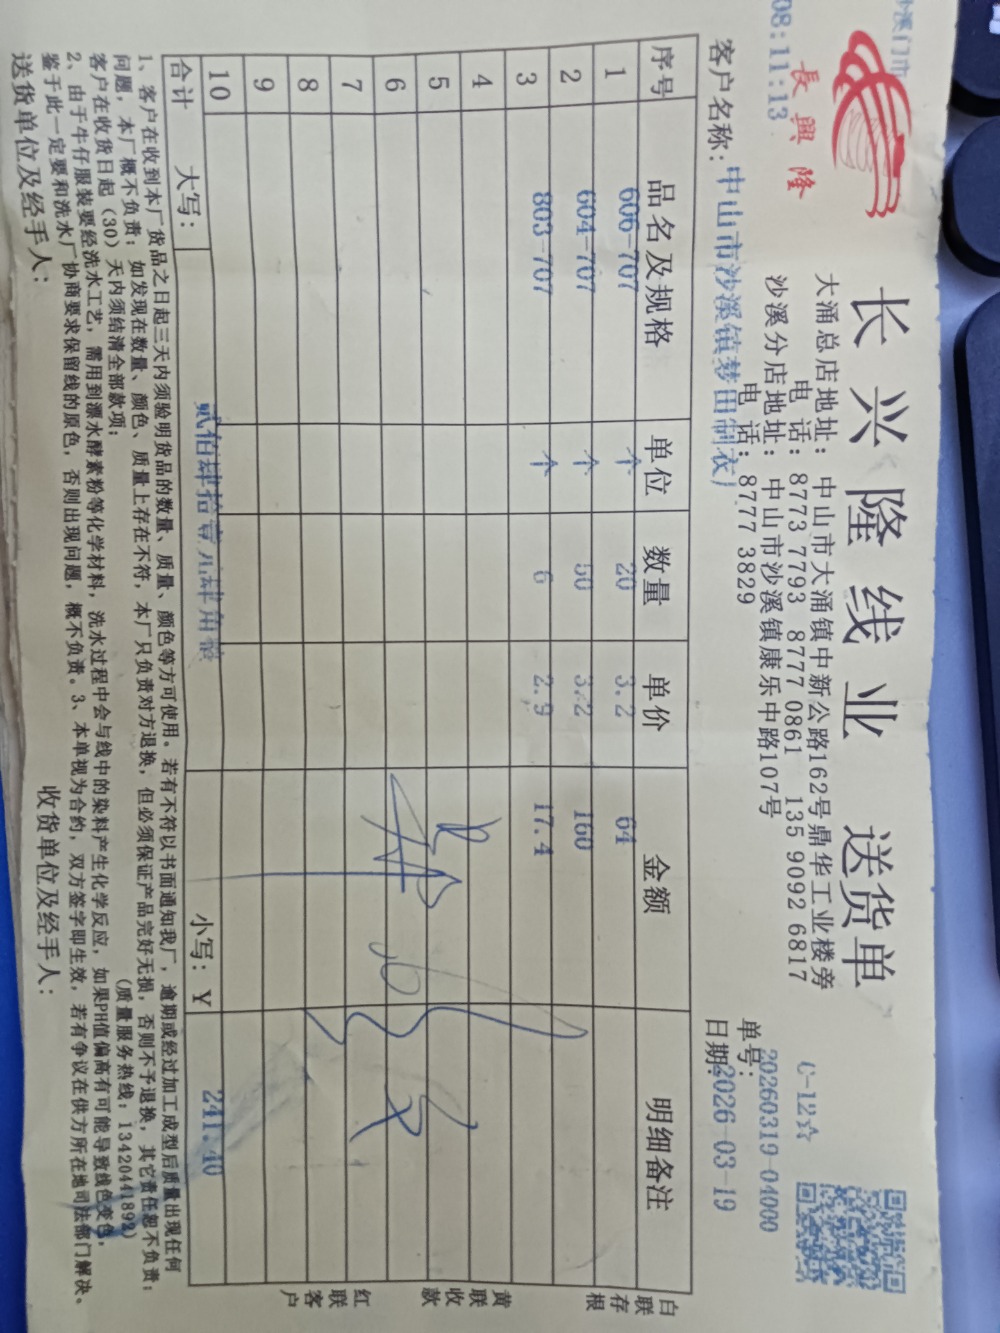 沙溪门市
08:11:13
長興隆
长兴隆线业 送货单
大涌总店地址：中山市大涌镇中新公路162号鼎华工业楼旁
电 话：8773 7793 8777 0861 135 9092 6817
沙溪分店地址：中山市沙溪镇康乐中路107号
电 话：8777 3829
C-12☆
单号：20260319-04000
客户名称：中山市沙溪镇梦田制衣厂
日期：2026-03-19
序号 品名及规格 单位 数量 单价 金额 明细备注
1 606-707 个 20 3.2 64
2 604-707 个 50 3.2 160
3 803-707 个 6 2.9 17.4
4
5
6
7
8
9
10
合计 大写：贰佰肆拾壹元肆角整 小写：￥ 241.40
白联存根
黄联收款
红联客户
1、客户在收到本厂货品之日起三天内须验明货品的数量、质量、颜色等方可使用。若有不符以书面通知我厂，逾期或经过加工成型后质量出现任何
问题，本厂概不负责；如发现在数量、颜色、质量上存在不符，本厂只负责对方退换，但必须保证产品完好无损，否则不予退换，其它责任恕不负责；
客户在收货日起（30）天内须结清全部款项； （质量服务热线：13420441892）
2、由于牛仔服装要经洗水工艺，需用到漂水酵素粉等化学材料，洗水过程中会与线中的染料产生化学反应，如果PH值偏高有可能导致线色变色。
鉴于此一定要和洗水厂协商要求保留线的原色，否则出现问题，概不负责。3、本单视为合约，双方签字即生效，若有争议在供方所在地司法部门解决。
送货单位及经手人： 收货单位及经手人：